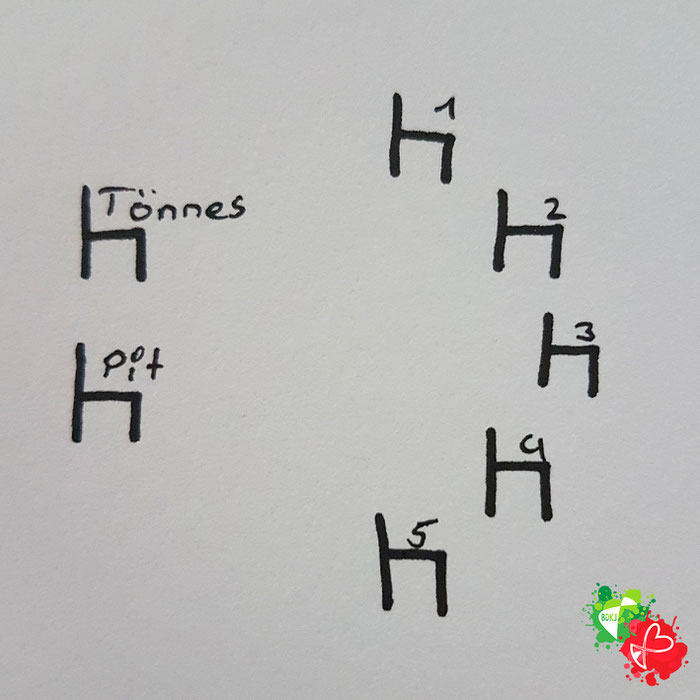 1
Tönnes
2
3
Pit
4
5
BDKJ